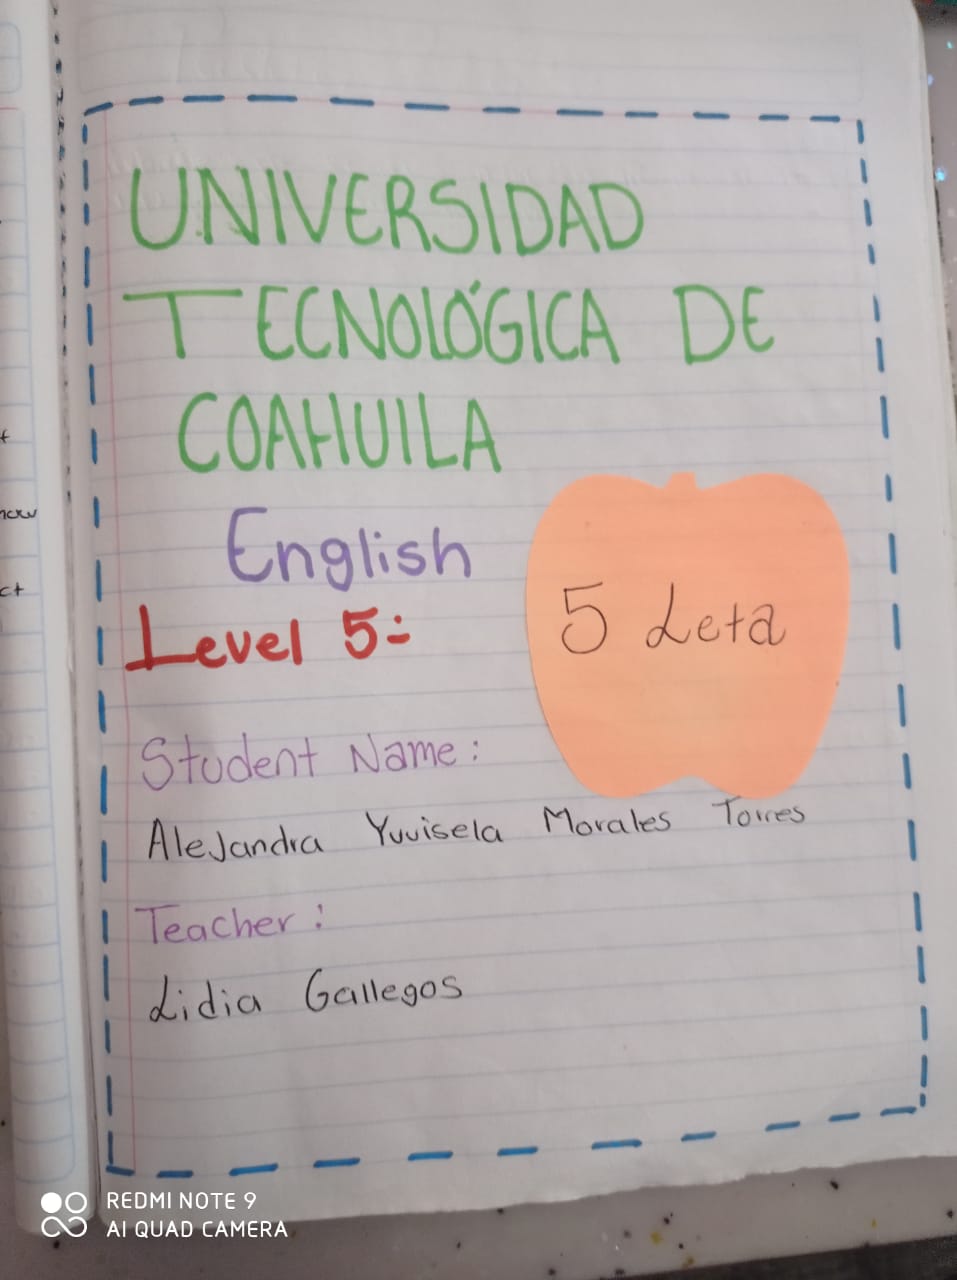 UNIVERSIDAD
TECNOLÓGICA DE
COAHUILA
English
Level 5:
5 Leta
Student Name:
Alejandra Yuuisela Morales Torres
Teacher:
Lidia Gallegos
ct
REDMI NOTE 9
AI QUAD CAMERA